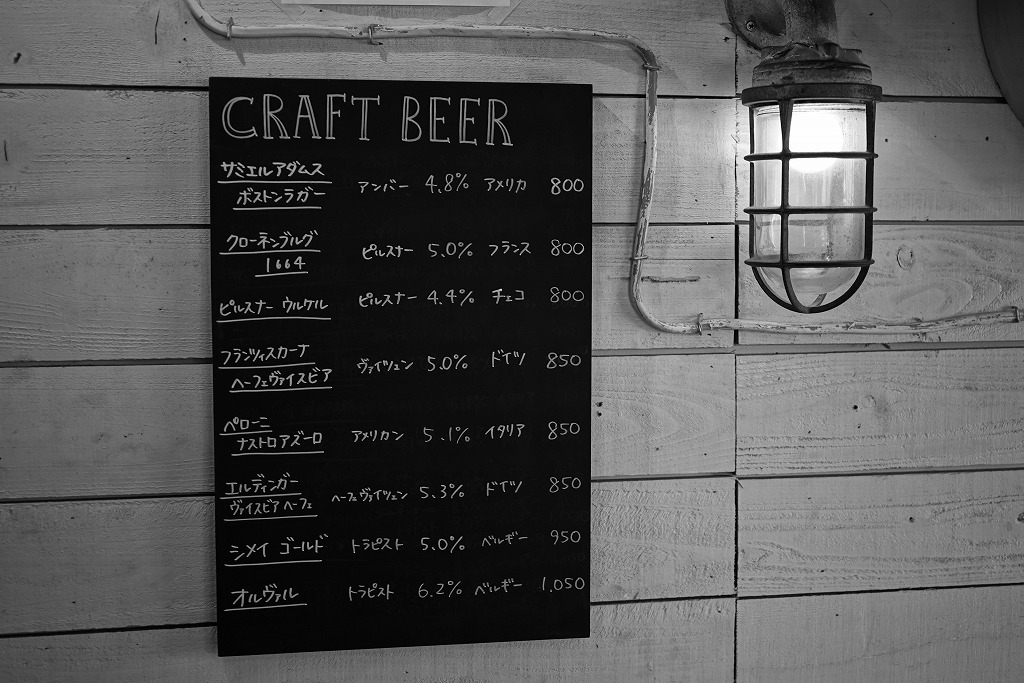 CRAFT BEER
サミエルアダムス
ボストンラガー アンバー 4.8% アメリカ 800
クローネンブルグ
1664 ピルスナー 5.0% フランス 800
ピルスナー ウルケル ピルスナー 4.4% チェコ 800
フランツィスカーナ
ヘーフェヴァイスビア ヴァイツェン 5.0% ドイツ 850
ペローニ
ナストロアズーロ アメリカン 5.1% イタリア 850
エルディンガー
ヴァイスビア ヘーフェ ヘーフェヴァイツェン 5.3% ドイツ 850
シメイ ゴールド トラピスト 5.0% ベルギー 950
オルヴァル トラピスト 6.2% ベルギー 1,050